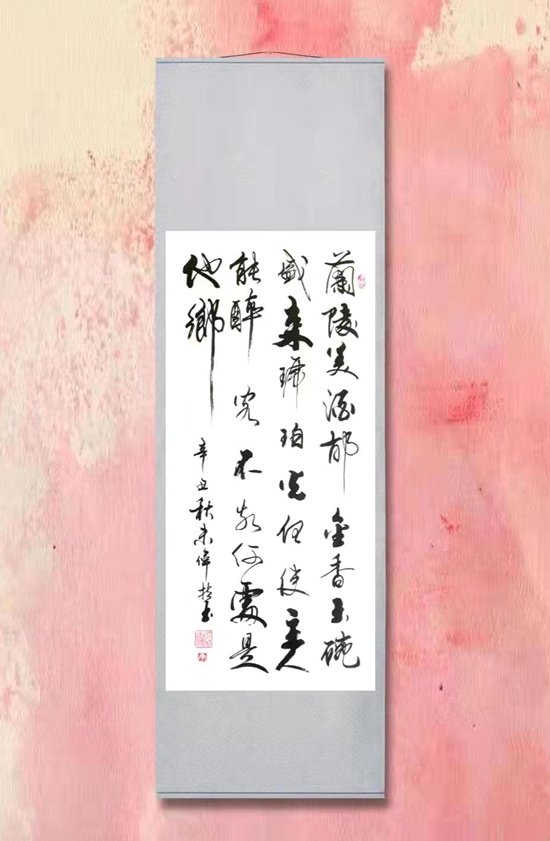 蘭陵美酒郁金香玉碗
盛来琥珀光但使主人
能醉客不知何處是
他鄉
辛丑秋